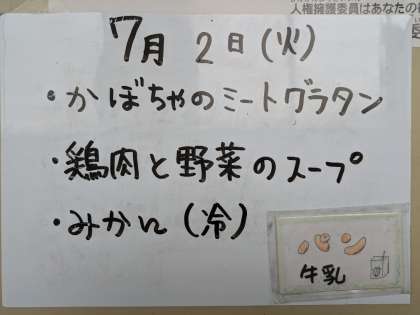 人権擁護委員はあなたの
7月 2日(火)
・かぼちゃのミートグラタン
・鶏肉と野菜のスープ
・みかん(冷)
パン
牛乳